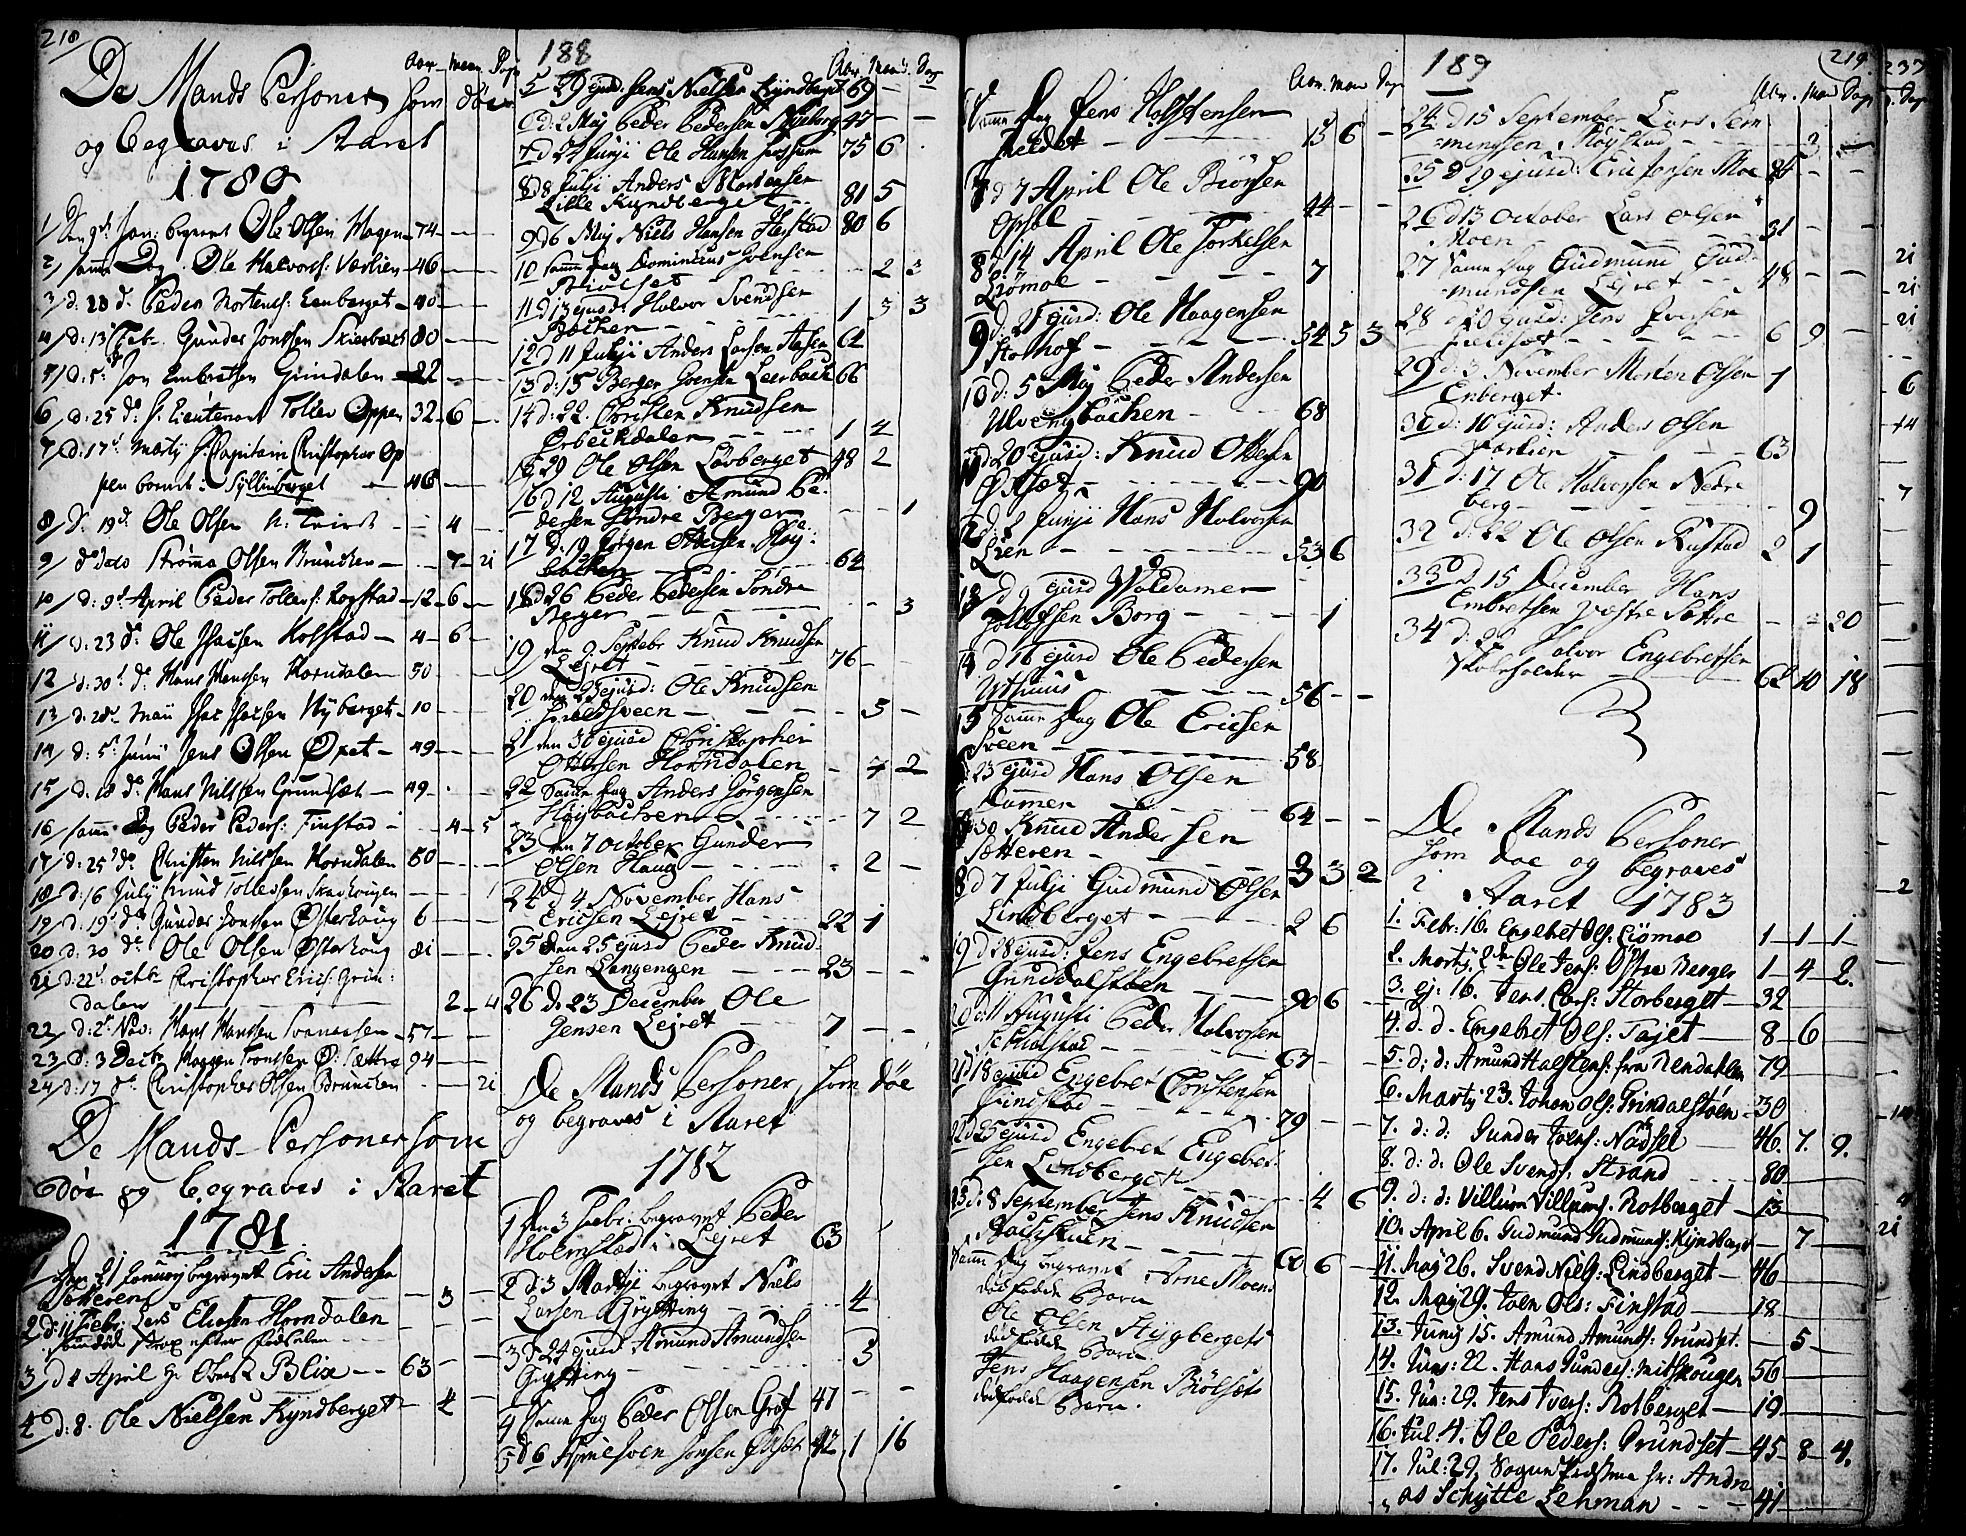 218
Aar. Maan. Dage
De Mands Personer som döe
og begraves i Aaret
1780
1/ Den 9de Jan: begravet Ole Olsen Hagen 74
2/ samme Dag Ole Halvors: Varlien 46
3/ d: 20 do Peder Mortens: Enberget 40
4/ d: 13 Febr. Gunder Jonssen Skierbech 80
5/ d: 5 do Jon Embretsen Grindalen 22
6 d: 25 do Hr Lieutenant Toller Oppen 32 6
7/ d: 17 Martij Hr Capitain Christopher Op
pen boende i Syllinberget 46
8/ d: 19 do Ole Olsen 4
9/ do dato Strømma Olsen Brundlen 7 21
10/ d: 9 April Peder Tollers: Rogstad 12 6
11/ d: 23 do Ole Hansen Kolstad 4 6
12/ d: 30 do Hans Hanssen Horndalen 50
13/ d: 28 Maii Nyberget 10
14/ d: 5 Junij Jens Olsen Oxet 49
15/ d. 10 do Hans Nilssen Grundsæt 49
16/ samme Dag Peder Peders: Finstad 4 5
17/ d: 25 do Christen Nilssen Horndalen 50
18/ d: 16 Julij Knud Tollefsen Skarhougen 1
19/ d: 19 do Gunder Jonssen Østerhaug 6
20/ d. 30 do Ole Olsen Østerhoug 81
21 d: 22 octbr Christopher Erics: Grin:
dalen 2 4
22/ d: 2 Nov: Hans Hanssen Svanæssen 57
23/ d: 3 Decbr Haagen Tronssen Ø: Sættre 94
24/ d: 17 do Christopher Olsen Brundlen 21
De Mands Personer som
döe og begraves i Aaret
1781
1/ Den 21 January begravet Eric Andersen
Sætteren 3
2 d: 11 Febr. Lars Elissen Horndalen
som död strax efter fødselen
3/ d 4 April Hr Oberst Blix 63
4/ d: 8. Ole Nielsen Kyndberget 4
188
Aar. Maan. Dag
5 29 ejusd: Jens Nielsen Kyndberget 69
6 d: 2 Maj Peder Pedersen Nyborg 47
7 d 24 Junji Ole Hansen Jossum 75 6
8 d 8 Julji Anders Mortensen
Lille Kyndberget 81 5
9 d 6 Maj Niels Hansen Herstad 80 6
10 Samme Dag Dominicus Svensen
2 3
11 d 13 ejusd: Halvor Svendsen
Bachen 1 3 3
12 d 11 Julji Anders Larsen Aasen 62
13 d: 15 Berger Svensen Leerback 66
14 d: 22. Christen Knudsen
Ørbechdalen 1 4
15 29 Ole Olsen Løvberget 48 2
16 d 12 Augusti Amund Pe
dersen Søndre Berger 1
17 D: 19 Jørgen Ottersen Høy
bachen 64
18 d 26 Peder Pedersen Søndre
Berger 3
19 den 9 Septebr Knud Knudsen
Lejret 76
20 den 23 ejusd: Ole Knudsen
Sveen 5
21 den 30 ejusd Christopher
Ottersen Horndalen 7 2
22 Samme dag Anders Jörgensen
Høybachen 7 2
23 den 7 October Gunder
Olsen Haug 2
24 d 4 November Hans
Ericsen Lejret 22 1
25 den 25 ejusd Peder Knud
sen Langengen 23
26 D: 23 December Ole
Jensen Lejret 7
De Mands Personer, som döe
og begraves i Aaret
1782
1 Den 3 Febr: begravet Peder
Holmstad i Lejret 63
2 d: 3 Martji begravet Niels
Larsen Grytting 4
3 d 24 ejusd Amund Amundsen
Grytting 3
4 Samme dag Peder Olsen Graf 47
5 d 6 April Sven Jonsen Oxset 42 1 16
Aar. Maan Dag
Samme Dag Jens Holstensen
Fieldet 15 6
7 d 7 April Ole Biörsen
Opsal 44
8 d. 14 April Ole Torkelsen
Liömoe 7
9 d: 21 ejusd: Ole Haagensen
Stolhof 54 5 3
10 d: 5 Maj Peder Andersen
Ulvengbachen 68
11 d: 20 ejusd: Knud Ottesen
Oxset 90
12 d. 2 Junji Hans Halvorsen
Lien 53 6
13 d 9 ejusd Woldamer
Borg 1
14 d 16 ejusd Ole Pedersen
Ythuus 56
15 Samme dag Ole Ericsen
Sveen 58
d. 23 ejusd Hans Olsen
Rømen 64
30 Knud Andersen
Sætteren 3 3 2
8 d 7 Julji Gudmund Olsen
Lindberget 2 6
19 d 28 ejusd: Jens Engebretsen
Grundalstøen 90 6
20 d: 11 Augusti Peder Halvorsen
Schiolstad 67
21 d 18 ejusd Engebret Christensen
Findstad 79
22 d 25 ejusd Engebret Engebret
sen Lindberget 4 6
23 d: 8 September Jens Knudsen
60 6
Samme Dag begravet Arne Moens
dødfødde Barn
Ole Olsen Stygbergets
dødfødde Barn
Jens Haagensen Bölsets
dødfødde Barn.
189
219
Aar. Man Dag
24 d 15 September Lars Sem
mingsen Høystad 3
25 d 29 ejusd: Eric Jonsen Moe 84
26 d 13 October Lars Olsen
Moen 31
27 Samme dag Gudmund Gud
mundsen Lejret 48
28 d 20 ejusd: Jens Iversen
6 9
29 d: 3 November Morten Olsen
Enberget 1
30 d: 10 ejusd: Anders Olsen
Varlien 63
31 d: 17 Ole Halvorsen Nedre
berg 9
32 D: 22 Ole Olsen Rustad 2 1
33 d 15 December Hans
Embretsen Vestre Sættre 20
34 d: 26 Halvor Engebretsen
Skoleholder 62 10 18
De Mands Personer
som döe og begraves
i Aaret 1783
1. Febr: 16. Engebret Ols: Liömoe 1 1 1
2. Martij 2den Ole Jens: Østre Berger 1 4 2.
3. ej: 16. Jens Lars: Storberget 32
4. d. d. Engebret Ols: Tajet 8 6
5. d: d: Amund Halstens: fra Nendahlen 79
6. Martij 23. Johan Ols: Grindalstøen 30
7. d: d: Gunder Joens: Nadsel 46. 7. 9.
8. d: d: Ole Svends: Strand 80
9. d: d: Villum Villums: Rotberget 13
10. April 6. Gudmund Gudmunds: Kyndberget 7
11. Maj 26. Svend Niels: Lindberget 46
12. Maj 29. Joen Ols: Finstad 18
13. Junij 15. Amund Amunds: Grundset. 5
14. Jun: 22. Hans Gunders: Mitskougen 56
15. Jun: 29. Jens Ivers: Rotberget 19
16. Jul. 4. Ole Peders: Grundset 45 8 4.
17. Jul: 29. Sogne Præsten hr: Andre
as Schytte Lehman 41
237
Dag
21
21
21
6
14
7
2
21